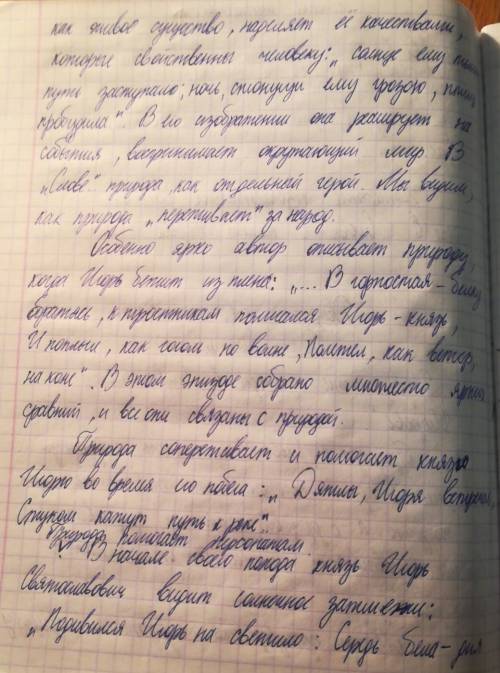 как живое существо, наделяет её качествами,
которые свойственны человеку: „солнце ему
путь заступало; ночь, стонущи ему грозою,
пробудила". В его изображении она реагирует на
события, воспринимает окружающий мир. В
„Слове" природа, как отдельный герой. Мы видим,
как природа „переживает" за народ.
Особенно ярко автор описывает природу,
когда Игорь бежит из плена: „... В горностая - белку
обратясь, к тростникам помчался Игорь - князь,
И поплыл, как гоголь по волне, Полетел, как ветер,
на коне". В этом эпизоде собрано множество ярких
сравний, и все они связаны с природой.
Природа сопереживает и помогает князю
Игорю во время его побега: „ Дятлы, Игоря встречая,
Стуком кажут путь к реке".
Природа помогает персонажам.
В начале своего похода князь Игорь
Святославович видит солнечное затмение:
„Подивился Игорь на светило: Середь бела - дня